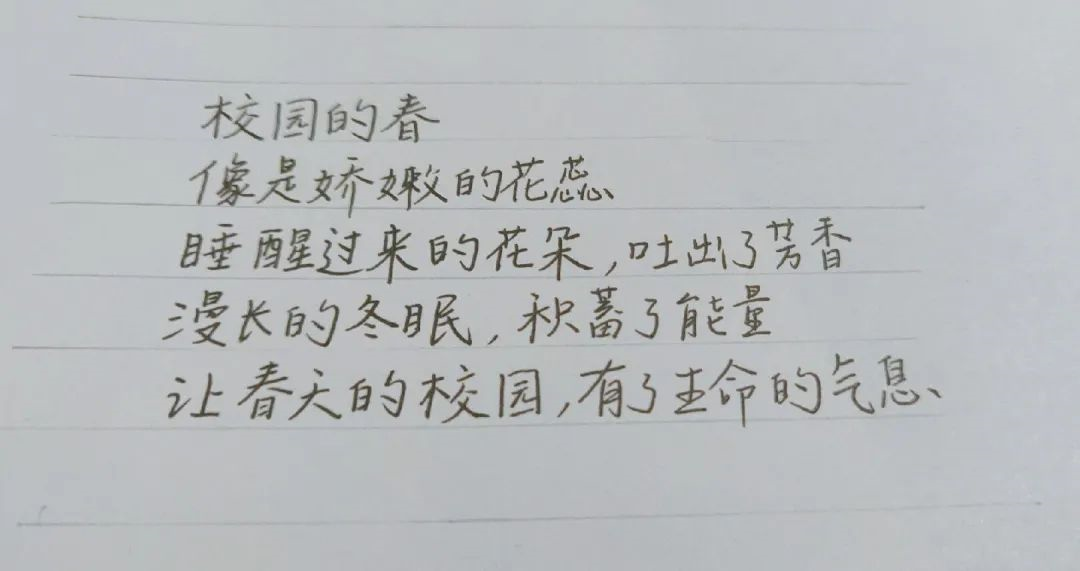 校园的春
像是娇嫩的花蕊
睡醒过来的花朵,吐出了芳香
漫长的冬眠,积蓄了能量
让春天的校园,有了生命的气息